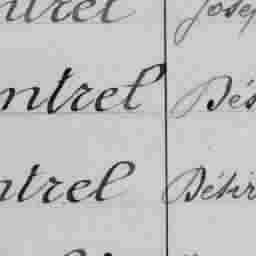 ntrel Josep
ntrel Dés
ntrel Désir